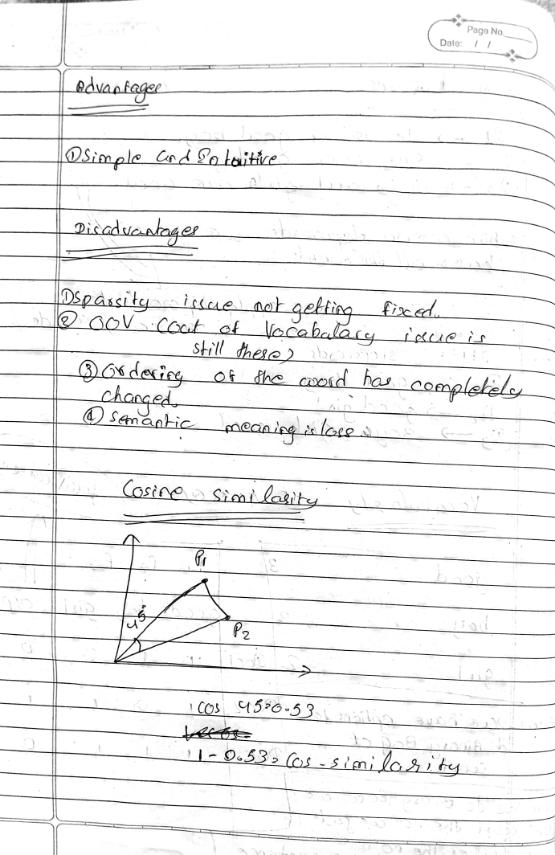 Page No.
Date: / /
Advantages
① Simple and Intuitive
Disadvantages
① Sparsity issue not getting fixed.
② OOV (out of Vocabalary issue is
still there)
③ Ordering of the word has completely
changed.
④ Semantic meaning is loss.
Cosine similarity
P1
45°
P2
cos 45=0.53
1-0.53= Cos-similarity